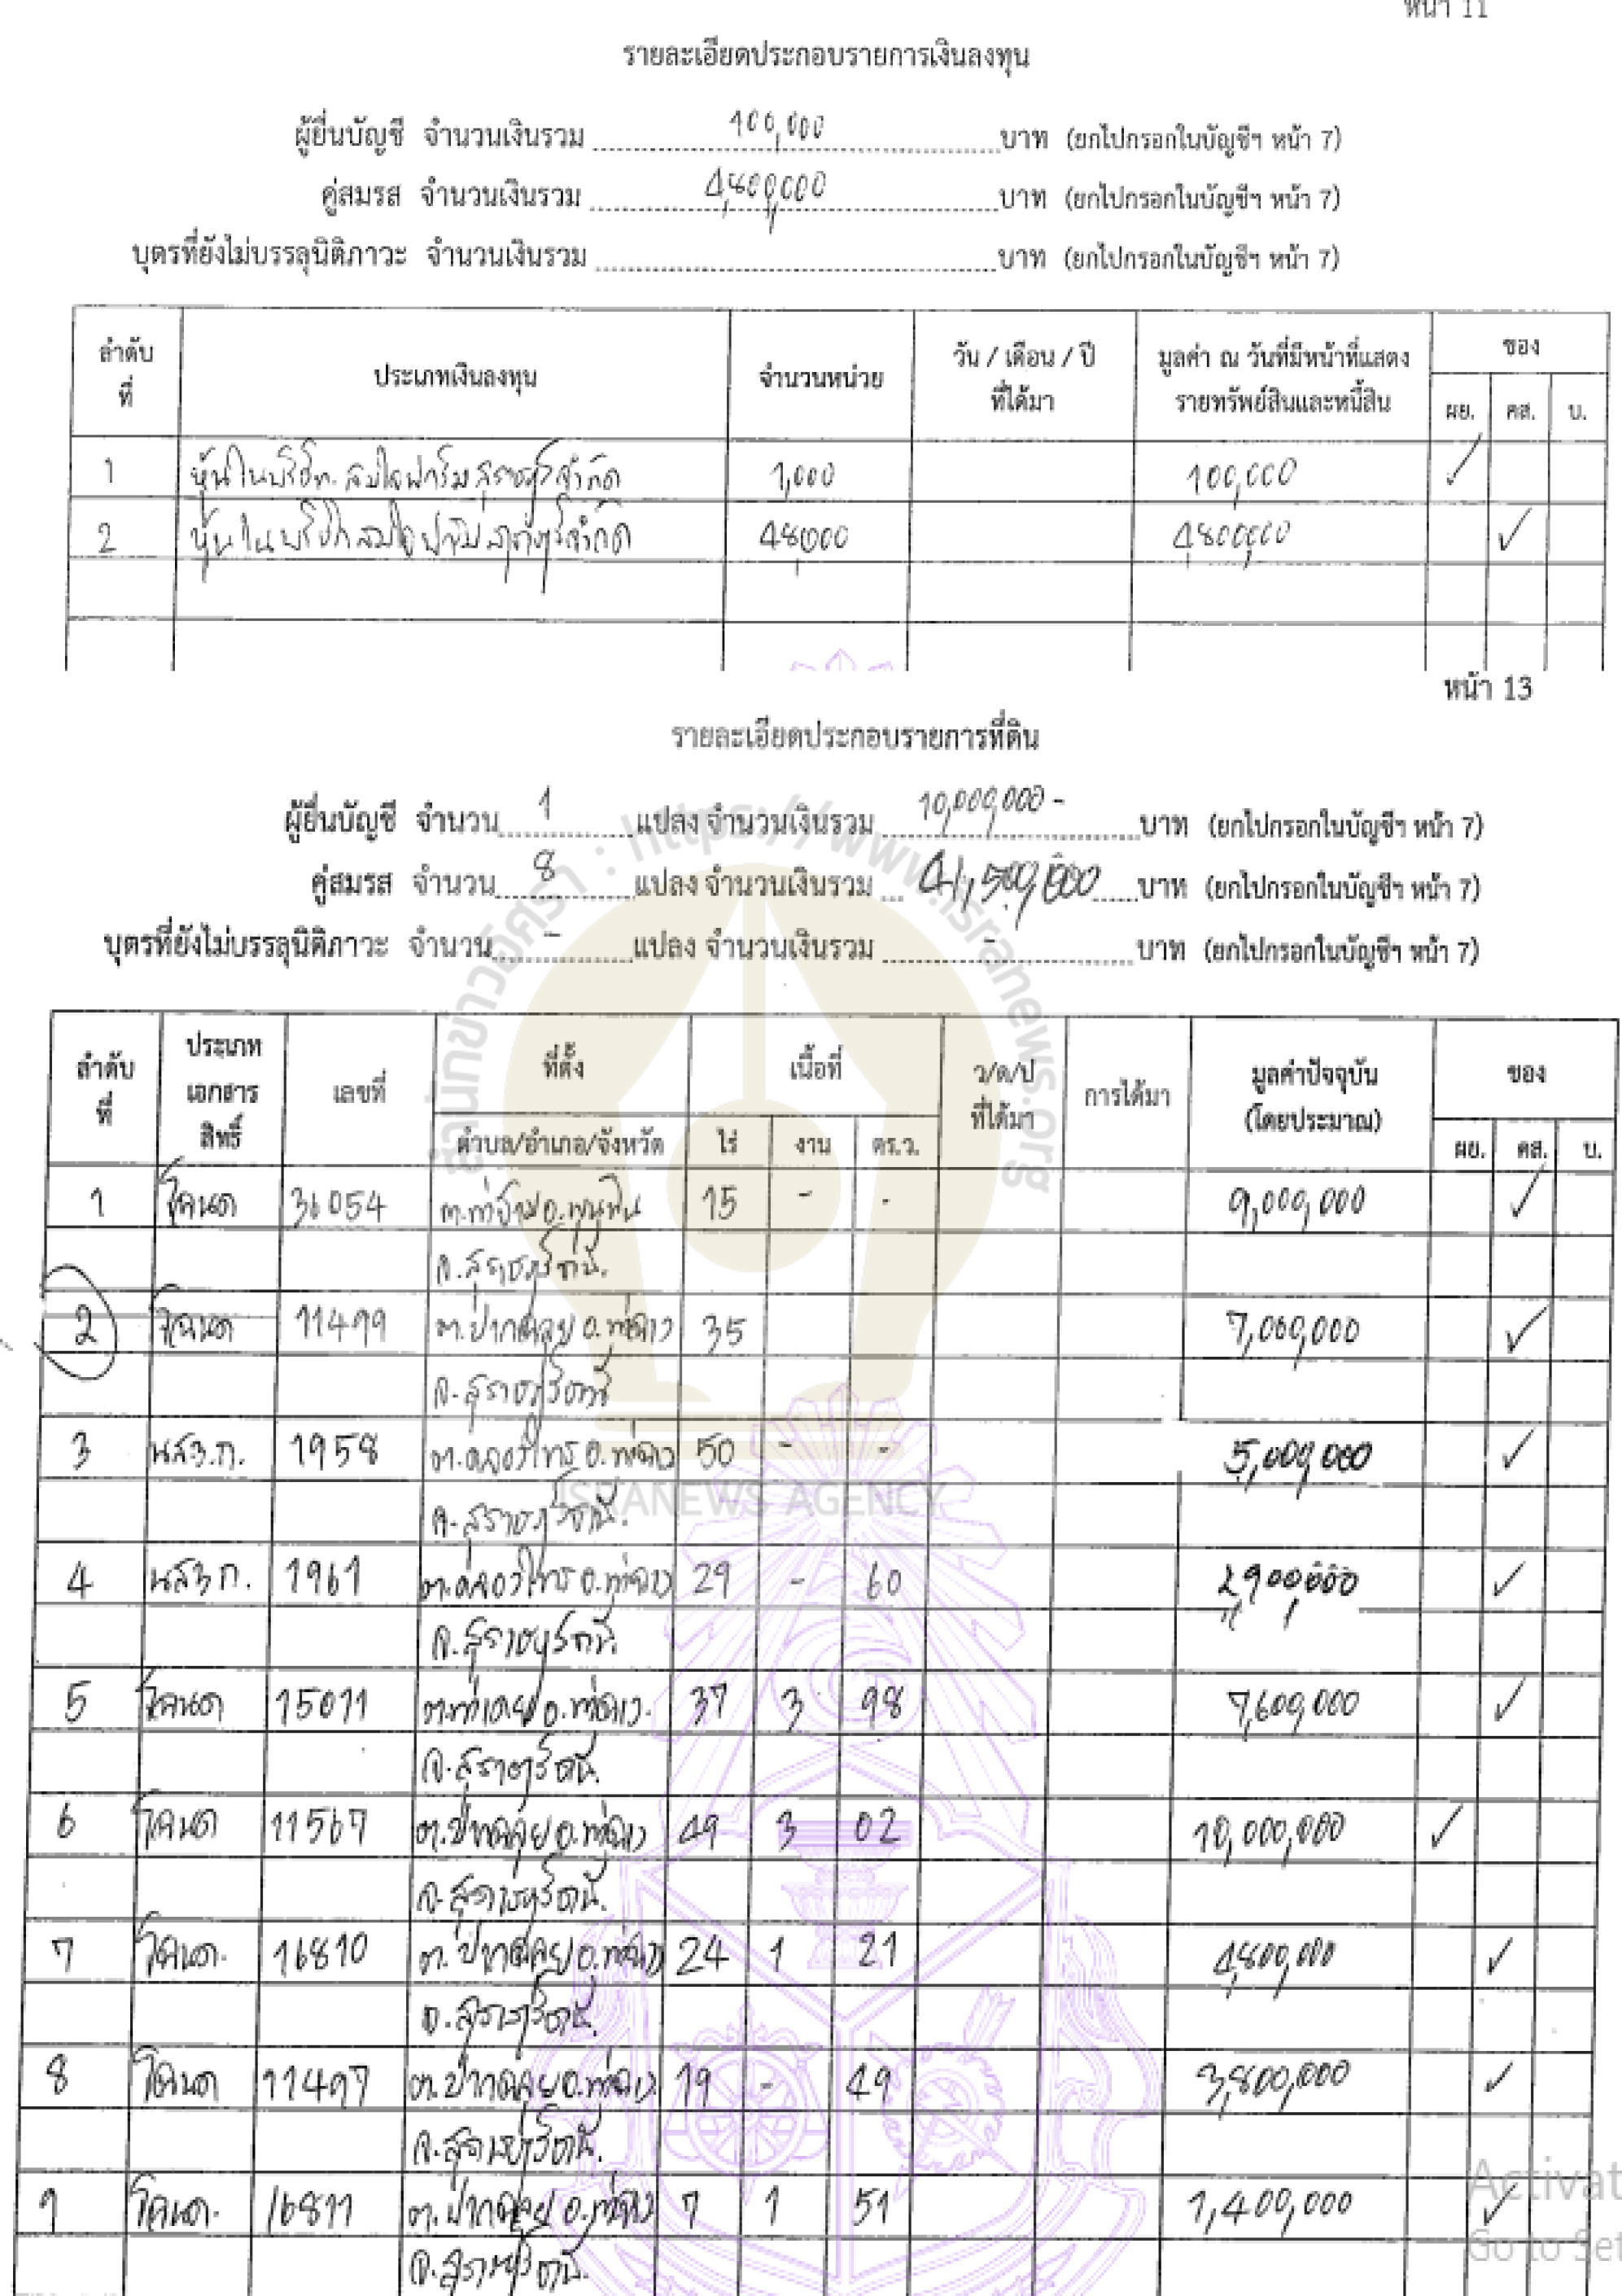 หน้า 11
รายละเอียดประกอบรายการเงินลงทุน
ผู้ยื่นบัญชี จำนวนเงินรวม 100,000 บาท (ยกไปกรอกในบัญชีฯ หน้า 7)
คู่สมรส จำนวนเงินรวม 4,800,000 บาท (ยกไปกรอกในบัญชีฯ หน้า 7)
บุตรที่ยังไม่บรรลุนิติภาวะ จำนวนเงินรวม บาท (ยกไปกรอกในบัญชีฯ หน้า 7)
ลำดับที่ ประเภทเงินลงทุน จำนวนหน่วย วัน / เดือน / ปี ที่ได้มา มูลค่า ณ วันที่มีหน้าที่แสดงรายทรัพย์สินและหนี้สิน ของ
ผย. คส. บ.
1 หุ้นในบริษัท สมใจฟาร์ม สุราษฎร์ จำกัด 1,000 100,000 ✓
2 หุ้นในบริษัท สมใจฟาร์ม สุราษฎร์ จำกัด 48,000 4,800,000 ✓
หน้า 13
รายละเอียดประกอบรายการที่ดิน
ผู้ยื่นบัญชี จำนวน 1 แปลง จำนวนเงินรวม 10,000,000 - บาท (ยกไปกรอกในบัญชีฯ หน้า 7)
คู่สมรส จำนวน 8 แปลง จำนวนเงินรวม 41,500,000 บาท (ยกไปกรอกในบัญชีฯ หน้า 7)
บุตรที่ยังไม่บรรลุนิติภาวะ จำนวน - แปลง จำนวนเงินรวม - บาท (ยกไปกรอกในบัญชีฯ หน้า 7)
สำนักข่าวอิศรา : https://www.isranews.org
ลำดับที่ ประเภทเอกสารสิทธิ์ เลขที่ ที่ตั้ง เนื้อที่ ว/ด/ป ที่ได้มา การได้มา มูลค่าปัจจุบัน (โดยประมาณ) ของ
ตำบล/อำเภอ/จังหวัด ไร่ งาน ตร.ว. ผย. คส. บ.
1 โฉนด 36054 ต.ท่าข้าม อ.พุนพิน 15 - - 9,000,000 ✓
จ.สุราษฎร์ธานี.
2 โฉนด 11499 ต.ปากฉลุย อ.ท่าฉาง 35 7,000,000 ✓
จ.สุราษฎร์ธานี
3 นส3.ก. 1958 ต.คลองไทร อ.ท่าฉาง 50 - - 5,000,000 ✓
จ.สุราษฎร์ธานี.
ISRANEWS AGENCY
4 นส3 ก. 1961 ต.คลองไทร อ.ท่าฉาง 29 - 60 2,900,000 ✓
จ.สุราษฎร์ธานี.
5 โฉนด 15011 ต.ท่าเคย อ.ท่าฉาง. 37 3 98 7,600,000 ✓
จ.สุราษฎร์ธานี.
6 โฉนด 11567 ต.ปากฉลุย อ.ท่าฉาง 49 3 02 10,000,000 ✓
จ.สุราษฎร์ธานี.
7 โฉนด. 16810 ต.ปากฉลุย อ.ท่าฉาง 24 1 21 4,800,000 ✓
จ.สุราษฎร์ธานี.
8 โฉนด 11497 ต.ปากฉลุย อ.ท่าฉาง 19 - 49 3,800,000 ✓
จ.สุราษฎร์ธานี.
9 โฉนด. 16811 ต.ปากฉลุย อ.ท่าฉาง 7 1 51 1,400,000 ✓
จ.สุราษฎร์ธานี.
Activat
Go to Set